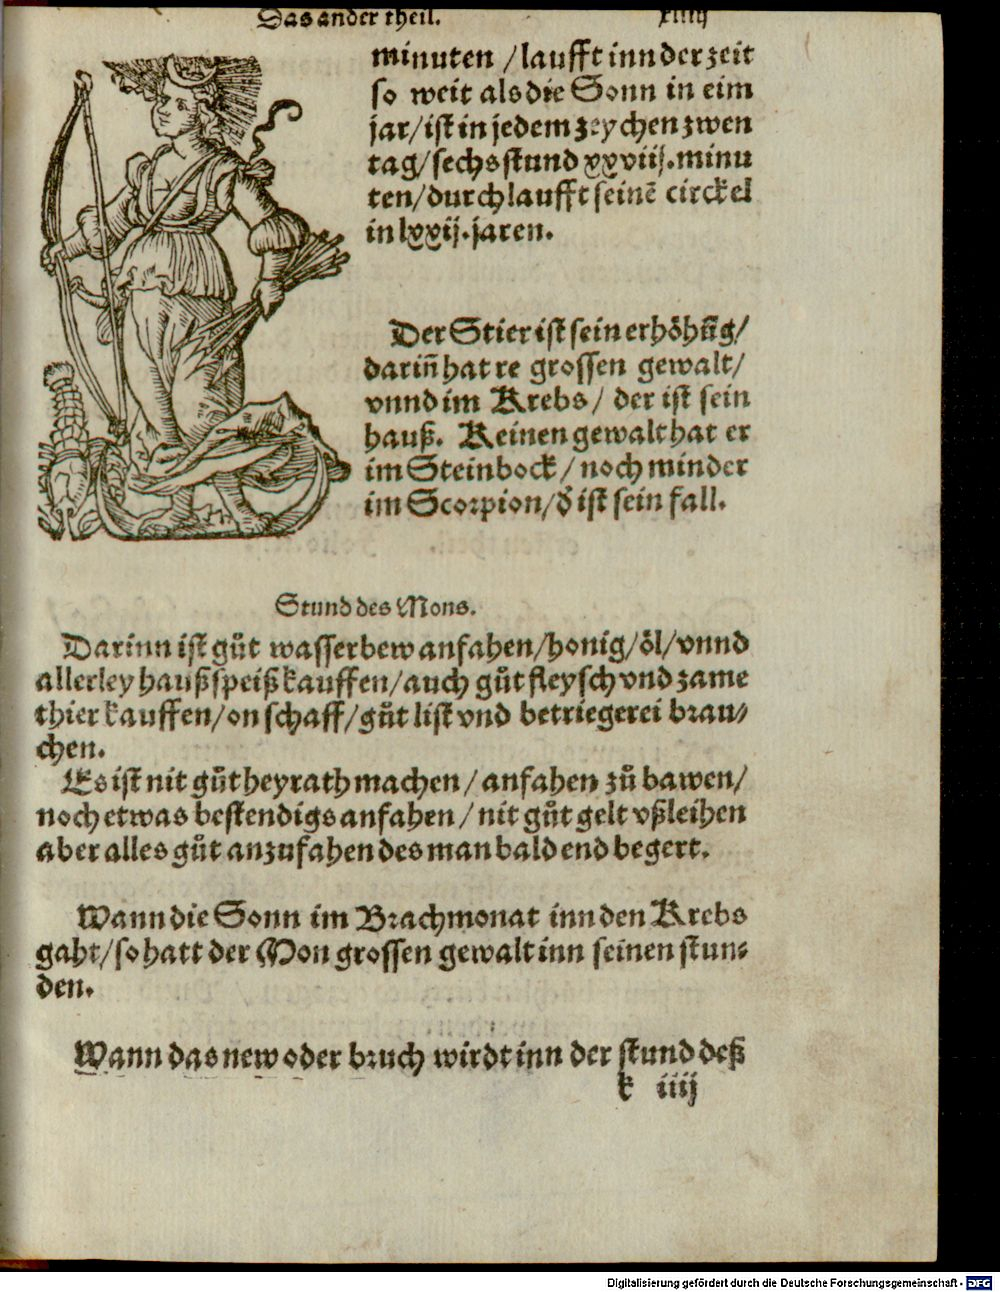 Das ander theil. xliiij
minuten /laufft inn der zeit
so weit als die Sonn in eim
jar/ist in jedem zeychen zwen
tag/sechs stund xxviij.minu
ten/durchlaufft seinē circkel
in lxxij.jaren.
Der Stier ist sein erhoͤhūg/
dariñ hat re grossen gewalt/
vnnd im Krebs/ der ist sein
hauß. Keinen gewalt hat er
im Steinbock/noch minder
im Scorpion/d̓ ist sein fall.
Stund des Mons.
Darinn ist guͦt wasserbew anfahen/honig/oͤl/vnnd
allerley haußspeiß kauffen/auch guͦt fleysch vnd zame
thier kauffen/on schaff/guͦt list vnd betriegerei brau⸗
chen.
Es ist nit guͦt heyrath machen/anfahen zuͦ bawen/
noch etwas bestendigs anfahen/nit guͦt gelt vßleihen
aber alles guͦt anzufahen des man bald end begert.
Wann die Sonn im Brachmonat inn den Krebs
gaht/so hatt der Mon grossen gewalt inn seinen stun⸗
den.
Wann das new oder bruch wirdt inn der stund deß
k iiij
Digitalisierung gefördert durch die Deutsche Forschungsgemeinschaft - DFG